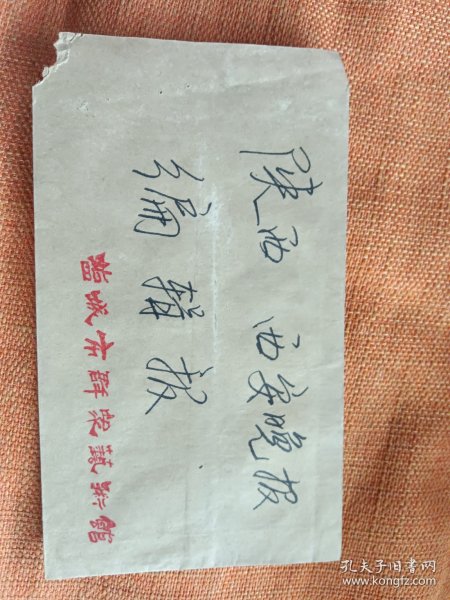 陕西 西安晚报
编辑报
鹽城市群衆藝術館
孔夫子旧书网
www.kongfz.com